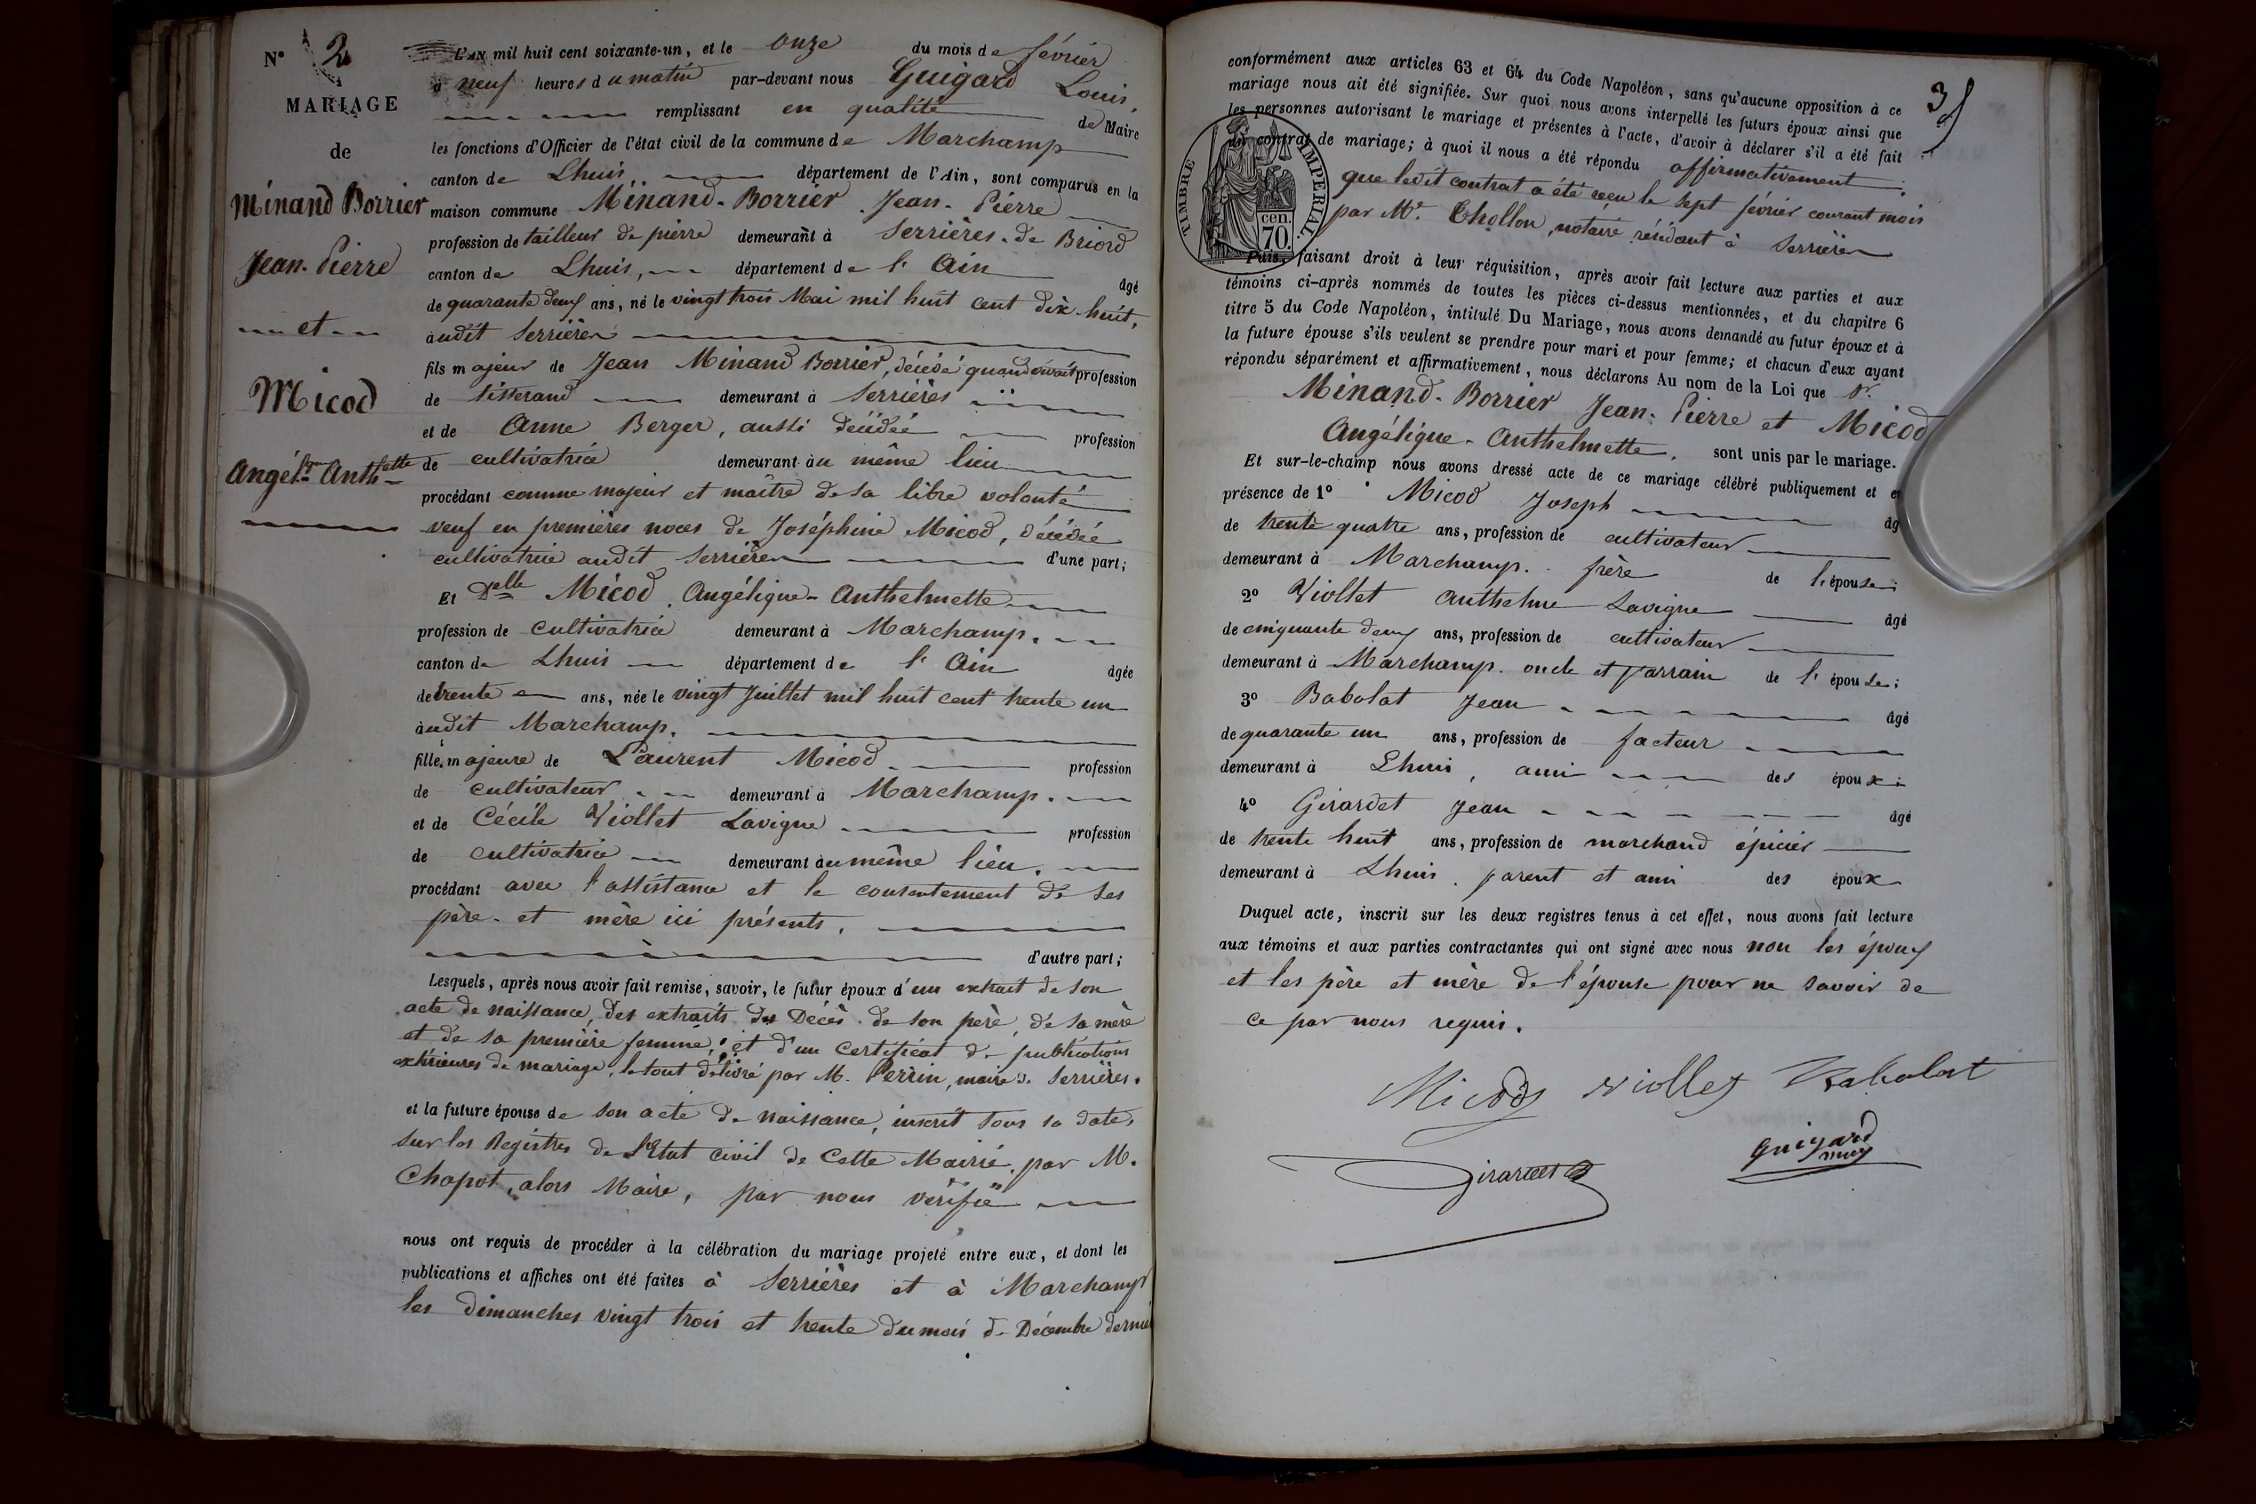 N° 2
MARIAGE
de
Minand Borrier
Jean-Pierre
et
Micod
Angél.que Anth.lmette
L'AN mil huit cent soixante-un, et le onze du mois de février
à neuf heures du matin par-devant nous Guigard Louis,
remplissant en qualité de Maire
les fonctions d'Officier de l'état civil de la commune de Marchamp
canton de Lhuis, département de l'Ain, sont comparus en la
maison commune Minand-Borrier Jean-Pierre
profession de tailleur de pierre demeurant à Serrières-de Briord
canton de Lhuis, département de l'Ain âgé
de quarante deux ans, né le vingt trois Mai mil huit cent dix-huit,
audit Serrières
fils majeur de Jean Minand Borrier, décédé quand vivait profession
de tisserand demeurant à Serrières
et de Anne Berger, aussi décédée profession
de cultivatrice demeurant au même lieu
procédant comme majeur et maître de sa libre volonté
veuf en premières noces de Joséphine Micod, décédée
cultivatrice audit Serrières d'une part;
Et Delle Micod Angélique-Anthelmette
profession de cultivatrice demeurant à Marchamp.
canton de Lhuis département de l'Ain âgée
de trente ans, née le vingt Juillet mil huit cent trente un
audit Marchamp.
fille majeure de Laurent Micod profession
de cultivateur demeurant à Marchamp.
et de Cécile Viollet Lavigne profession
de cultivatrice demeurant au même lieu.
procédant avec l'assistance et le consentement de ses
père et mère ici présents.
d'autre part;
Lesquels, après nous avoir fait remise, savoir, le futur époux d'un extrait de son
acte de naissance, des extraits du Décès de son père, de sa mère
et de sa première femme, et d'un Certificat de publications
extérieures de mariage, le tout délivré par M. Perrin, maire de Serrières.
et la future épouse de son acte de naissance, inscrit sous sa date,
sur les Registres de l'Etat civil de cette Mairie, par M.
Chapot, alors Maire, par nous vérifié
nous ont requis de procéder à la célébration du mariage projeté entre eux, et dont les
publications et affiches ont été faites à Serrières et à Marchamp
les dimanches vingt trois et trente du mois de Décembre dernier
3
conformément aux articles 63 et 64 du Code Napoléon, sans qu'aucune opposition à ce
mariage nous ait été signifiée. Sur quoi nous avons interpellé les futurs époux ainsi que
les personnes autorisant le mariage et présentes à l'acte, d'avoir à déclarer s'il a été fait
un contrat de mariage; à quoi il nous a été répondu affirmativement.
que ledit contrat a été reçu le sept février courant mois
par Me. Chollon, notaire résidant à Serrières
TIMBRE IMPERIAL.
cen.
70.
Puis, faisant droit à leur réquisition, après avoir fait lecture aux parties et aux
témoins ci-après nommés de toutes les pièces ci-dessus mentionnées, et du chapitre 6
titre 5 du Code Napoléon, intitulé Du Mariage, nous avons demandé au futur époux et à
la future épouse s'ils veulent se prendre pour mari et pour femme; et chacun d'eux ayant
répondu séparément et affirmativement, nous déclarons Au nom de la Loi que Sr.
Minand-Borrier Jean-Pierre et Micod
Angélique-Anthelmette, sont unis par le mariage.
Et sur-le-champ nous avons dressé acte de ce mariage célébré publiquement et en
présence de 1° Micod Joseph âgé
de trente quatre ans, profession de cultivateur
demeurant à Marchamp. frère de l'épouse;
2° Viollet Anthelme Lavigne âgé
de cinquante deux ans, profession de cultivateur
demeurant à Marchamp. oncle et parrain de l'épouse;
3° Babolat Jean âgé
de quarante un ans, profession de facteur
demeurant à Lhuis, ami des époux;
4° Girardet Jean âgé
de trente huit ans, profession de marchand épicier
demeurant à Lhuis. parent et ami des époux
Duquel acte, inscrit sur les deux registres tenus à cet effet, nous avons fait lecture
aux témoins et aux parties contractantes qui ont signé avec nous non les époux
et les père et mère de l'épouse pour ne savoir de
ce par nous requis.
Micod Viollet Babolat
Girardet Guigard
maire